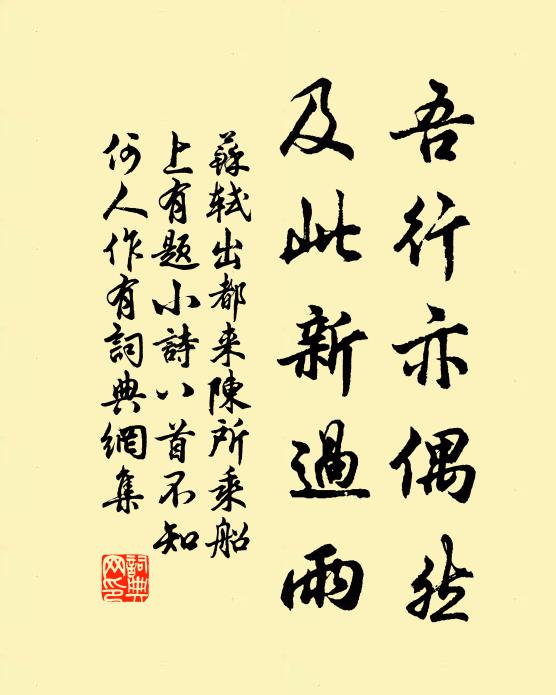 吾行亦偶然
及此新過雨
蘇軾出都来陳所乘船
上有题小詩八首不知
何人作有詞典網集
詞典
网印